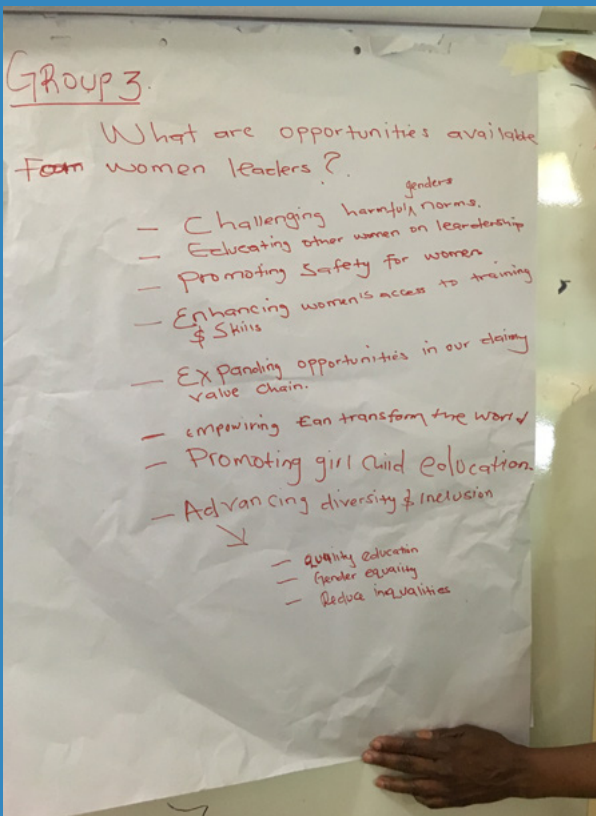 GROUP 3.
What are opportunities available
For women leaders?
genders
- Challenging harmful norms.
- Educating other women on leardership
- Promoting Safety for women
- Enhancing women's access to training
$ Skills
- Expanding opportunities in our dairy
value chain.
- empowiring can transform the world
- Promoting girl child education.
- Advancing diversity & inclusion
- quality education
- Gender equality
- Reduce inqualities